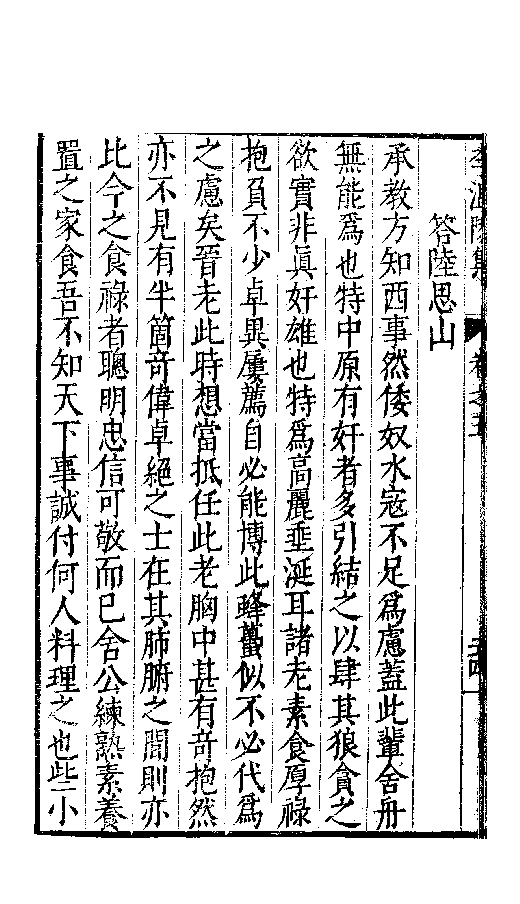 答陸思山
承教方知西事然倭奴水寇不足為慮蓋此輩舍舟
無能為也特中原有奸者多引結之以肆其狼貪之
欲實非真奸雄也特為高麗垂涎耳諸老素食厚祿
抱負不少卓異屢薦自必能博此蜂蠆似不必代為
之慮矣晉老此時想當抵任此老胸中甚有奇抱然
亦不見有半箇奇偉卓絕之士在其肺腑之間則亦
比今之食祿者聰明忠信可敬而已舍公練熟素養
置之家食吾不知天下事誠付何人料理之也些小